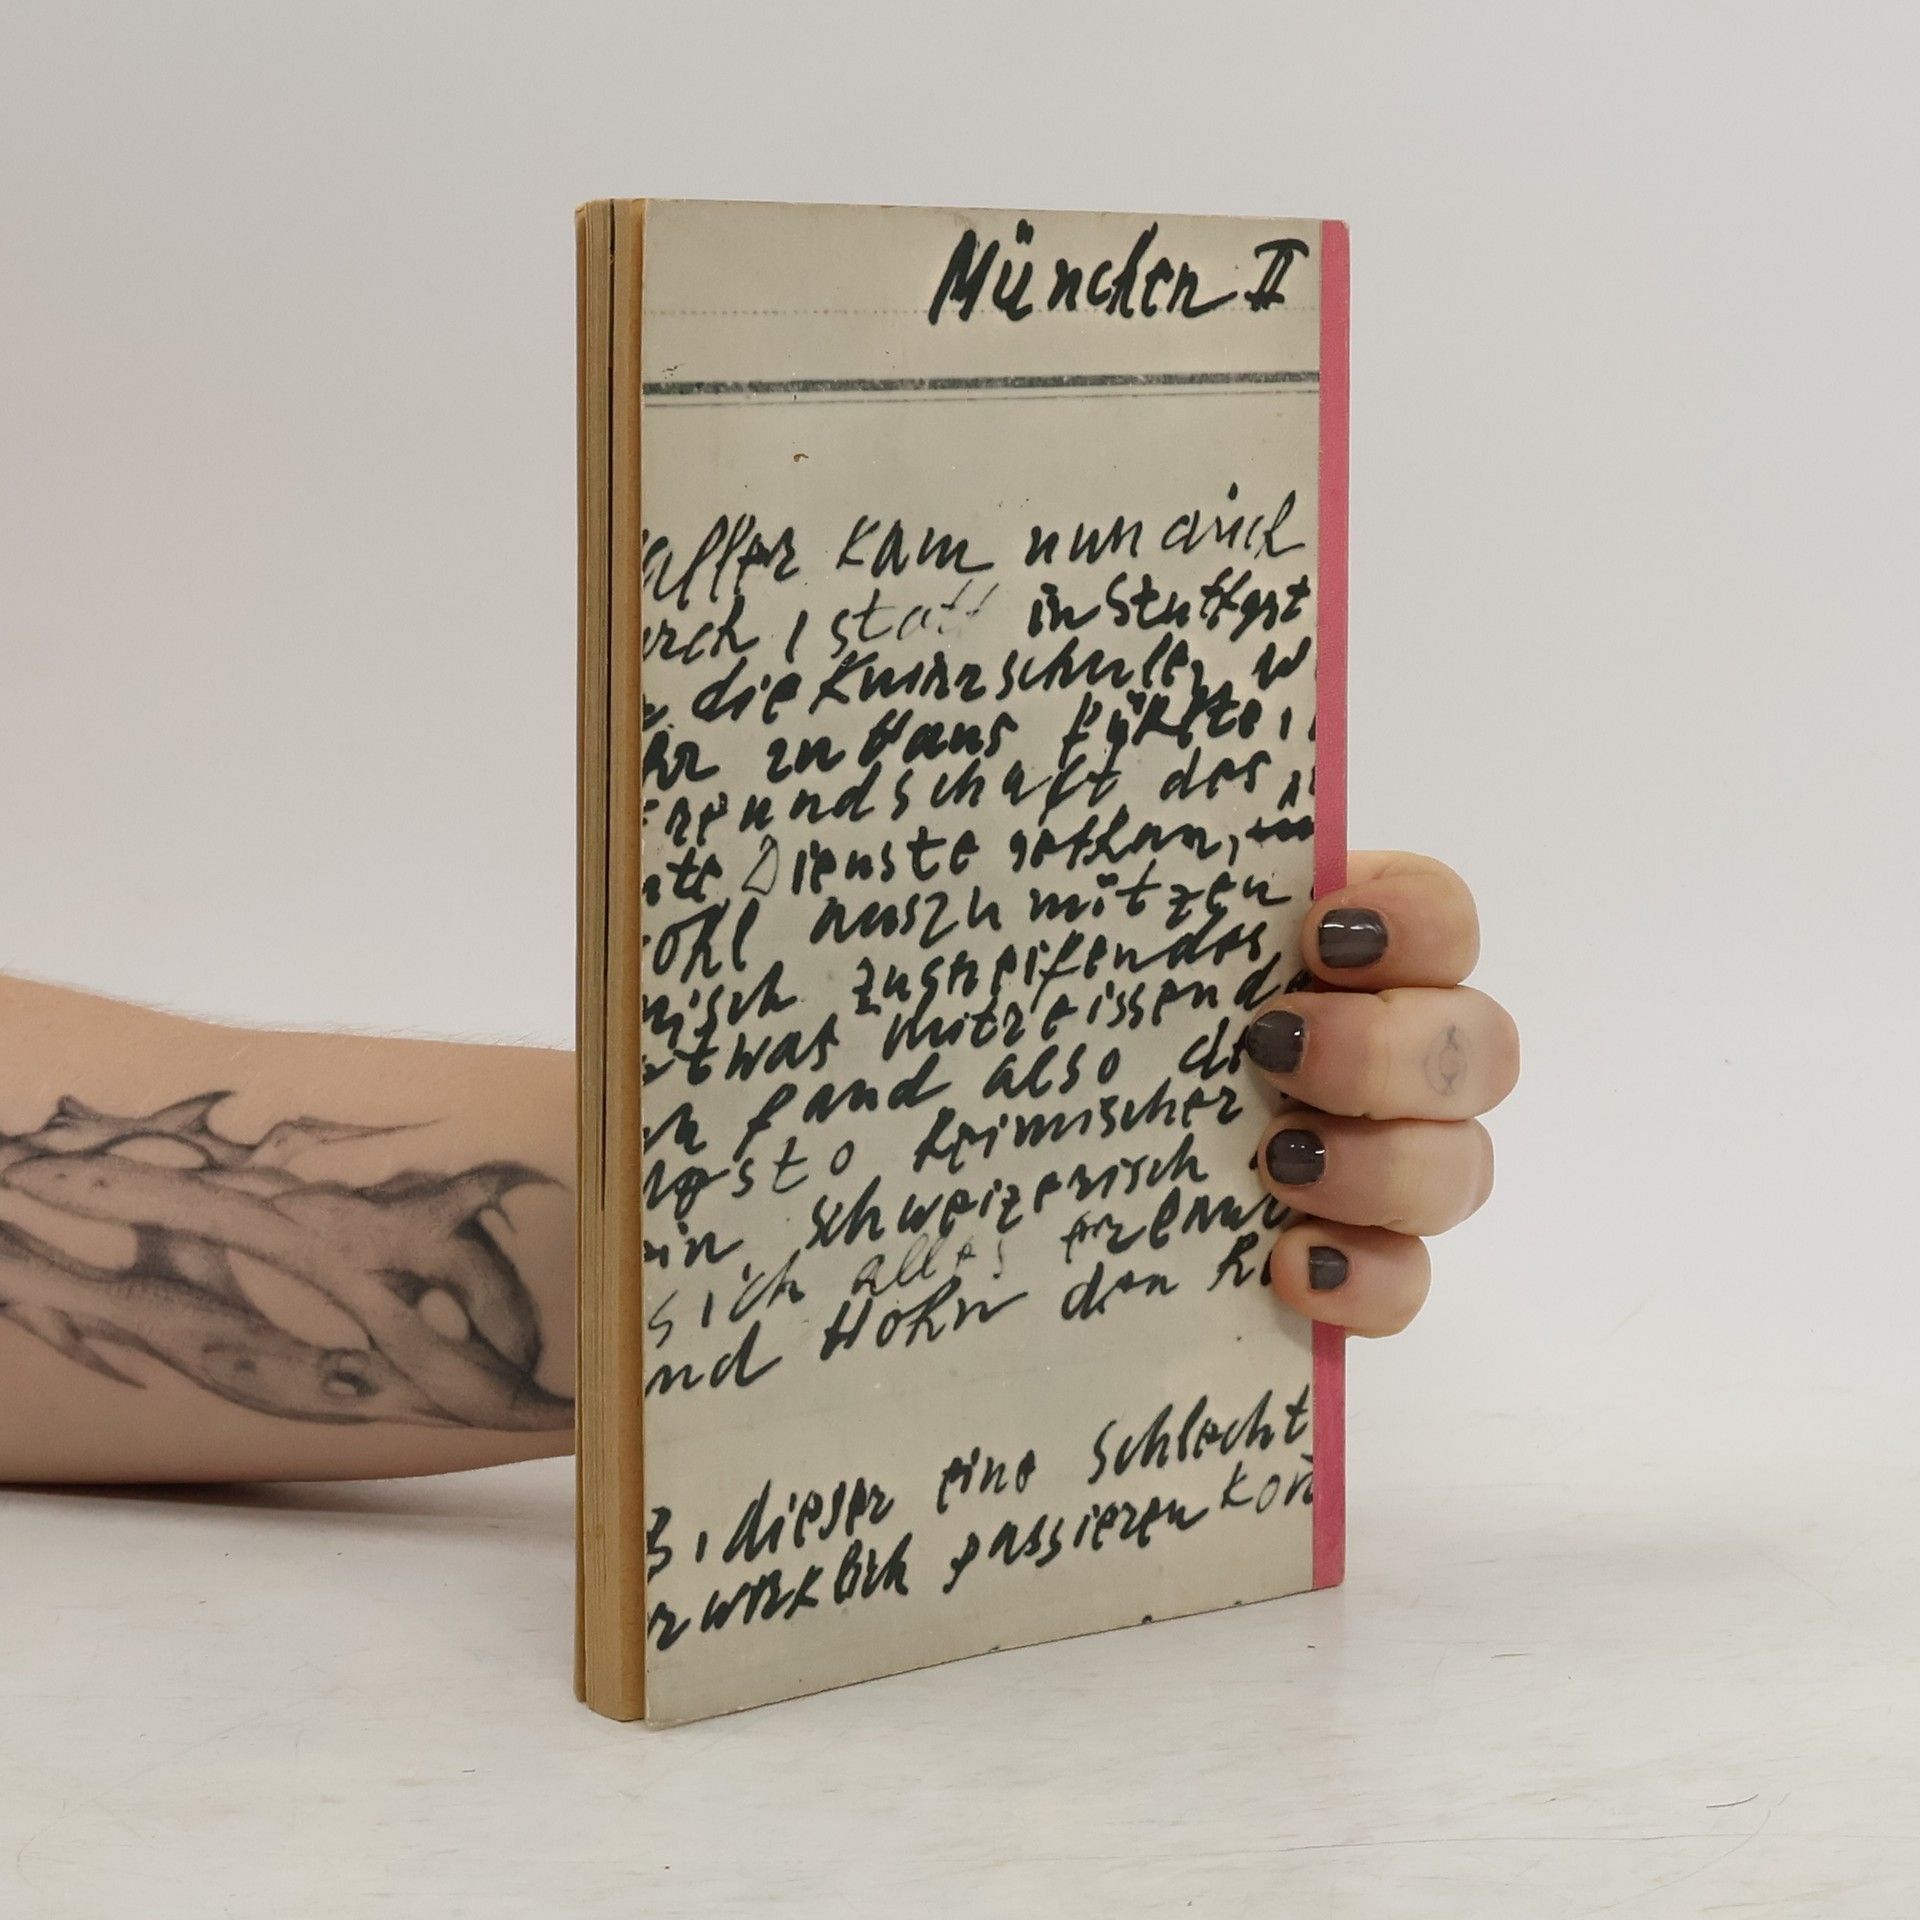 München II
aller kam nun auch
rch, statt in Stuttgrt
die Kunnschule, w
hr zu Haus fühlte,
reundschaft des
te Dienste gethan,
ohl auszunützen
misch zugreifendes
etwas mitreissende
ch fand also de
sto heimischer
in, schweizerisch
sich alles
nd Hohn den
, dieser eine Schlecht
r wirklich passieren kon